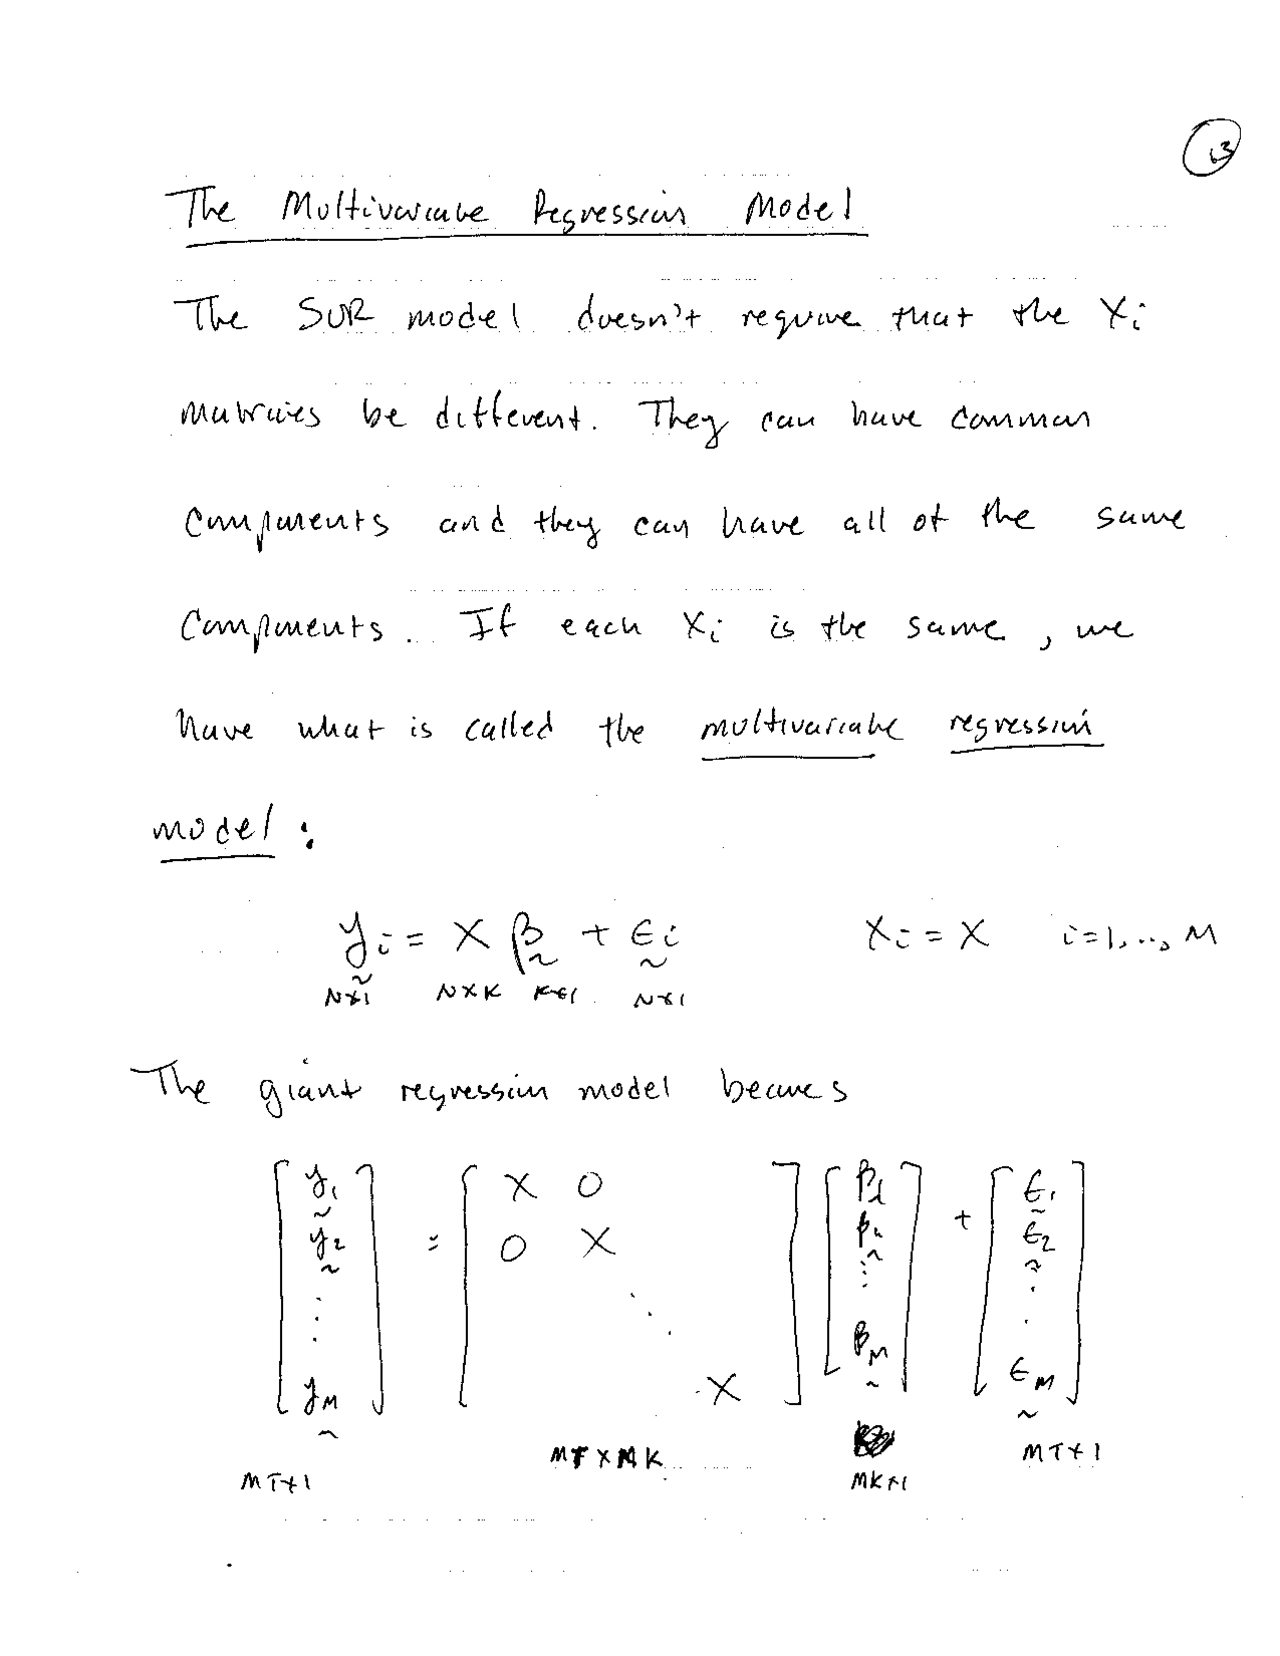 13
The Multivariate Regression Model
The SUR model doesn't require that the Xi
matrices be different. They can have common
components and they can have all of the same
components. If each Xi is the same, we
have what is called the multivariate regression
model:
yi = X β + εi    Xi = X    i=1,..., M
N×1    N×K    K×1    N×1
The giant regression model becomes
[ y1 ] = [ X 0 ] [ β1 ] + [ ε1 ]
[ y2 ] [ 0 X ] [ β2 ] [ ε2 ]
⋮ ⋱ ⋮ ⋮
[ yM ] [ X ] [ βM ] [ εM ]
MT×1    MT×MK    MK×1    MT×1